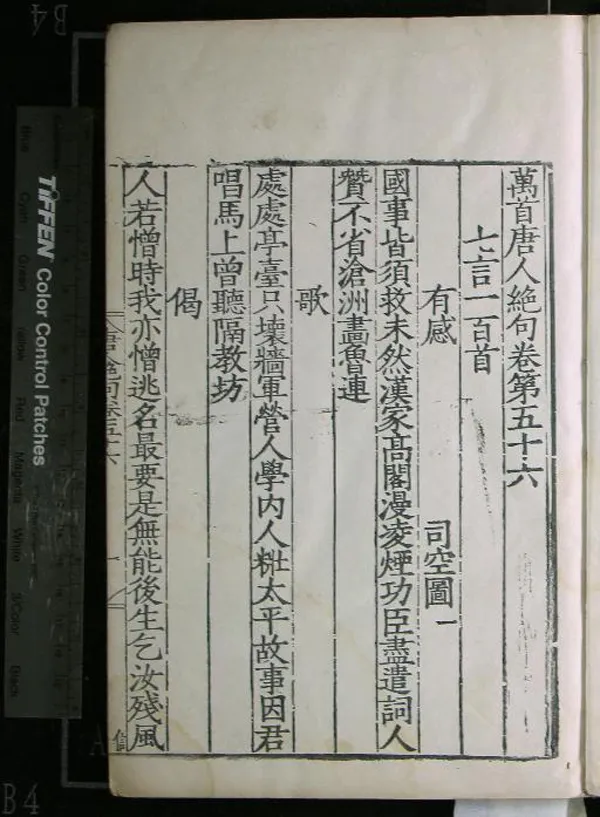 萬首唐人絕句卷第五十六
七言一百首
有感 司空圖一
國事皆須救未然漢家高閣漫凌煙功臣盡遣詞人
贊不省滄洲畫魯連
歌
處處亭臺只壞牆軍營人學內人粧太平故事因君
唱馬上曾聽隔教坊
偈
人若憎時我亦憎逃名最要是無能後生乞汝殘風
TIFFEN Color Control Patches
Blue
Cyan
Green
Yellow
Red
Magenta
White
3/Color
Black
B4
B4